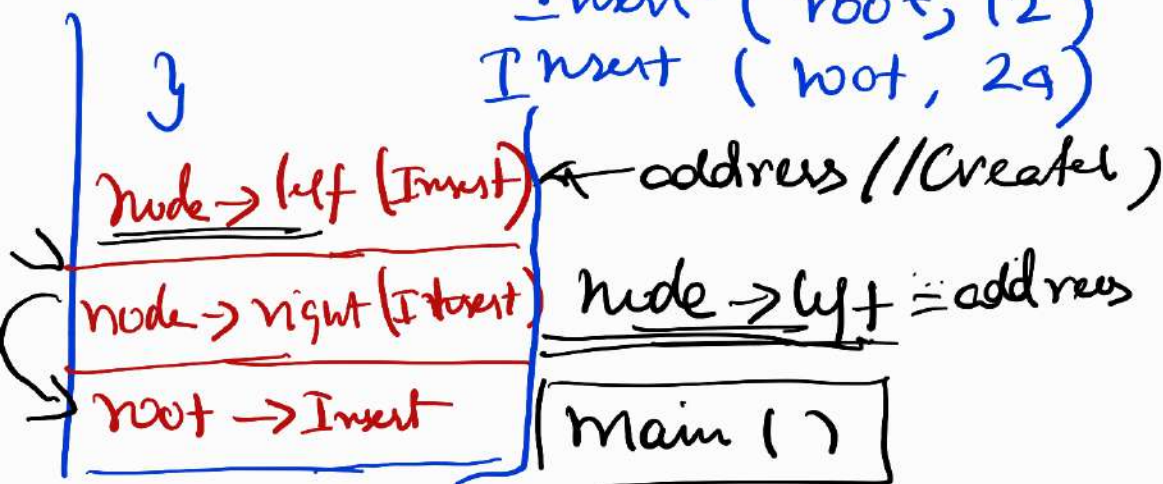 Insert ( root, 12 )
}
Insert ( root, 24 )
node → left (Insert) ← address // Created )
node → right (Insert) node → left = address
root → Insert main ( )